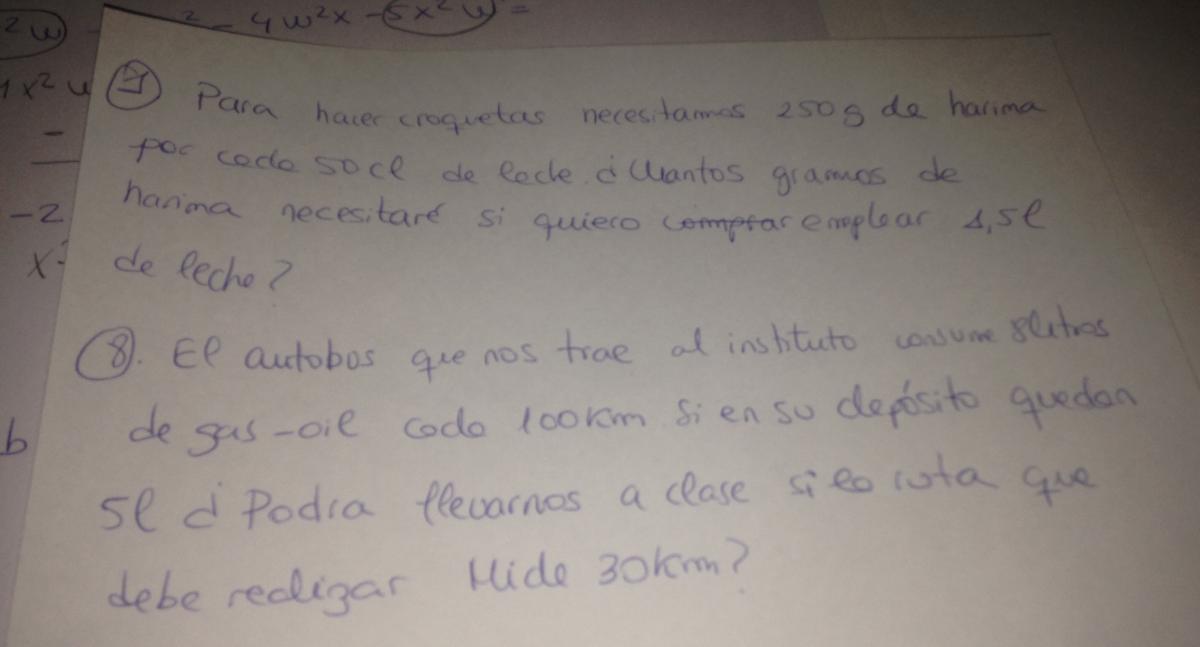 2w) - 2 - 4w²x - 5x²w =
1x²
-
-2
x
b
7 Para hacer croquetas necesitamos 250g de harina
por cada 50cl de leche ¿Cuantos gramos de
harina necesitaré si quiero comprar emplear 1,5l
de leche?
8. El autobos que nos trae al instituto consume 8litros
de gas-oil cada 100Km Si en su depósito quedan
5l ¿Podra llevarnos a clase si la ruta que
debe realizar Mide 30Km?